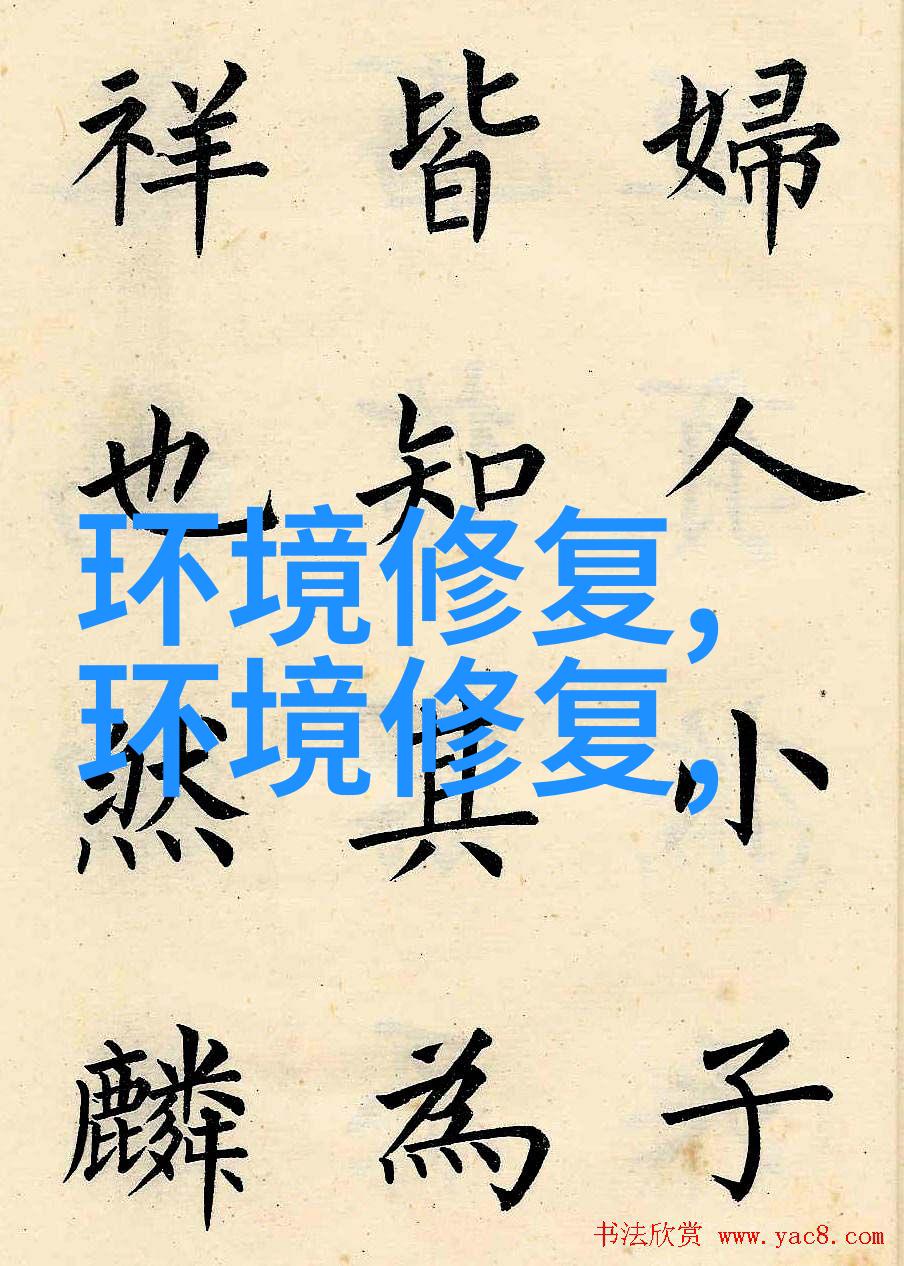 婦人小子
皆知其為
祥也然麟
环境修复,
环境修复,
书法欣赏 www.yac8.com